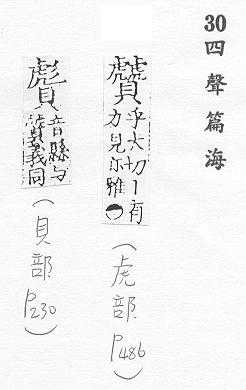 30四聲篇海
贙
乎犬切丨有
力見尔雅
(虎部P486)
音縣与
贙義同
(貝部P230)